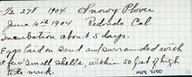 No 278 1904 Snowy Plover
June 10th 1904 Redondo Cal.
Incubation about 5 days.
Eggs laid on sand and surrounded with
a few small shells, within 50 ft of high
tide mark.